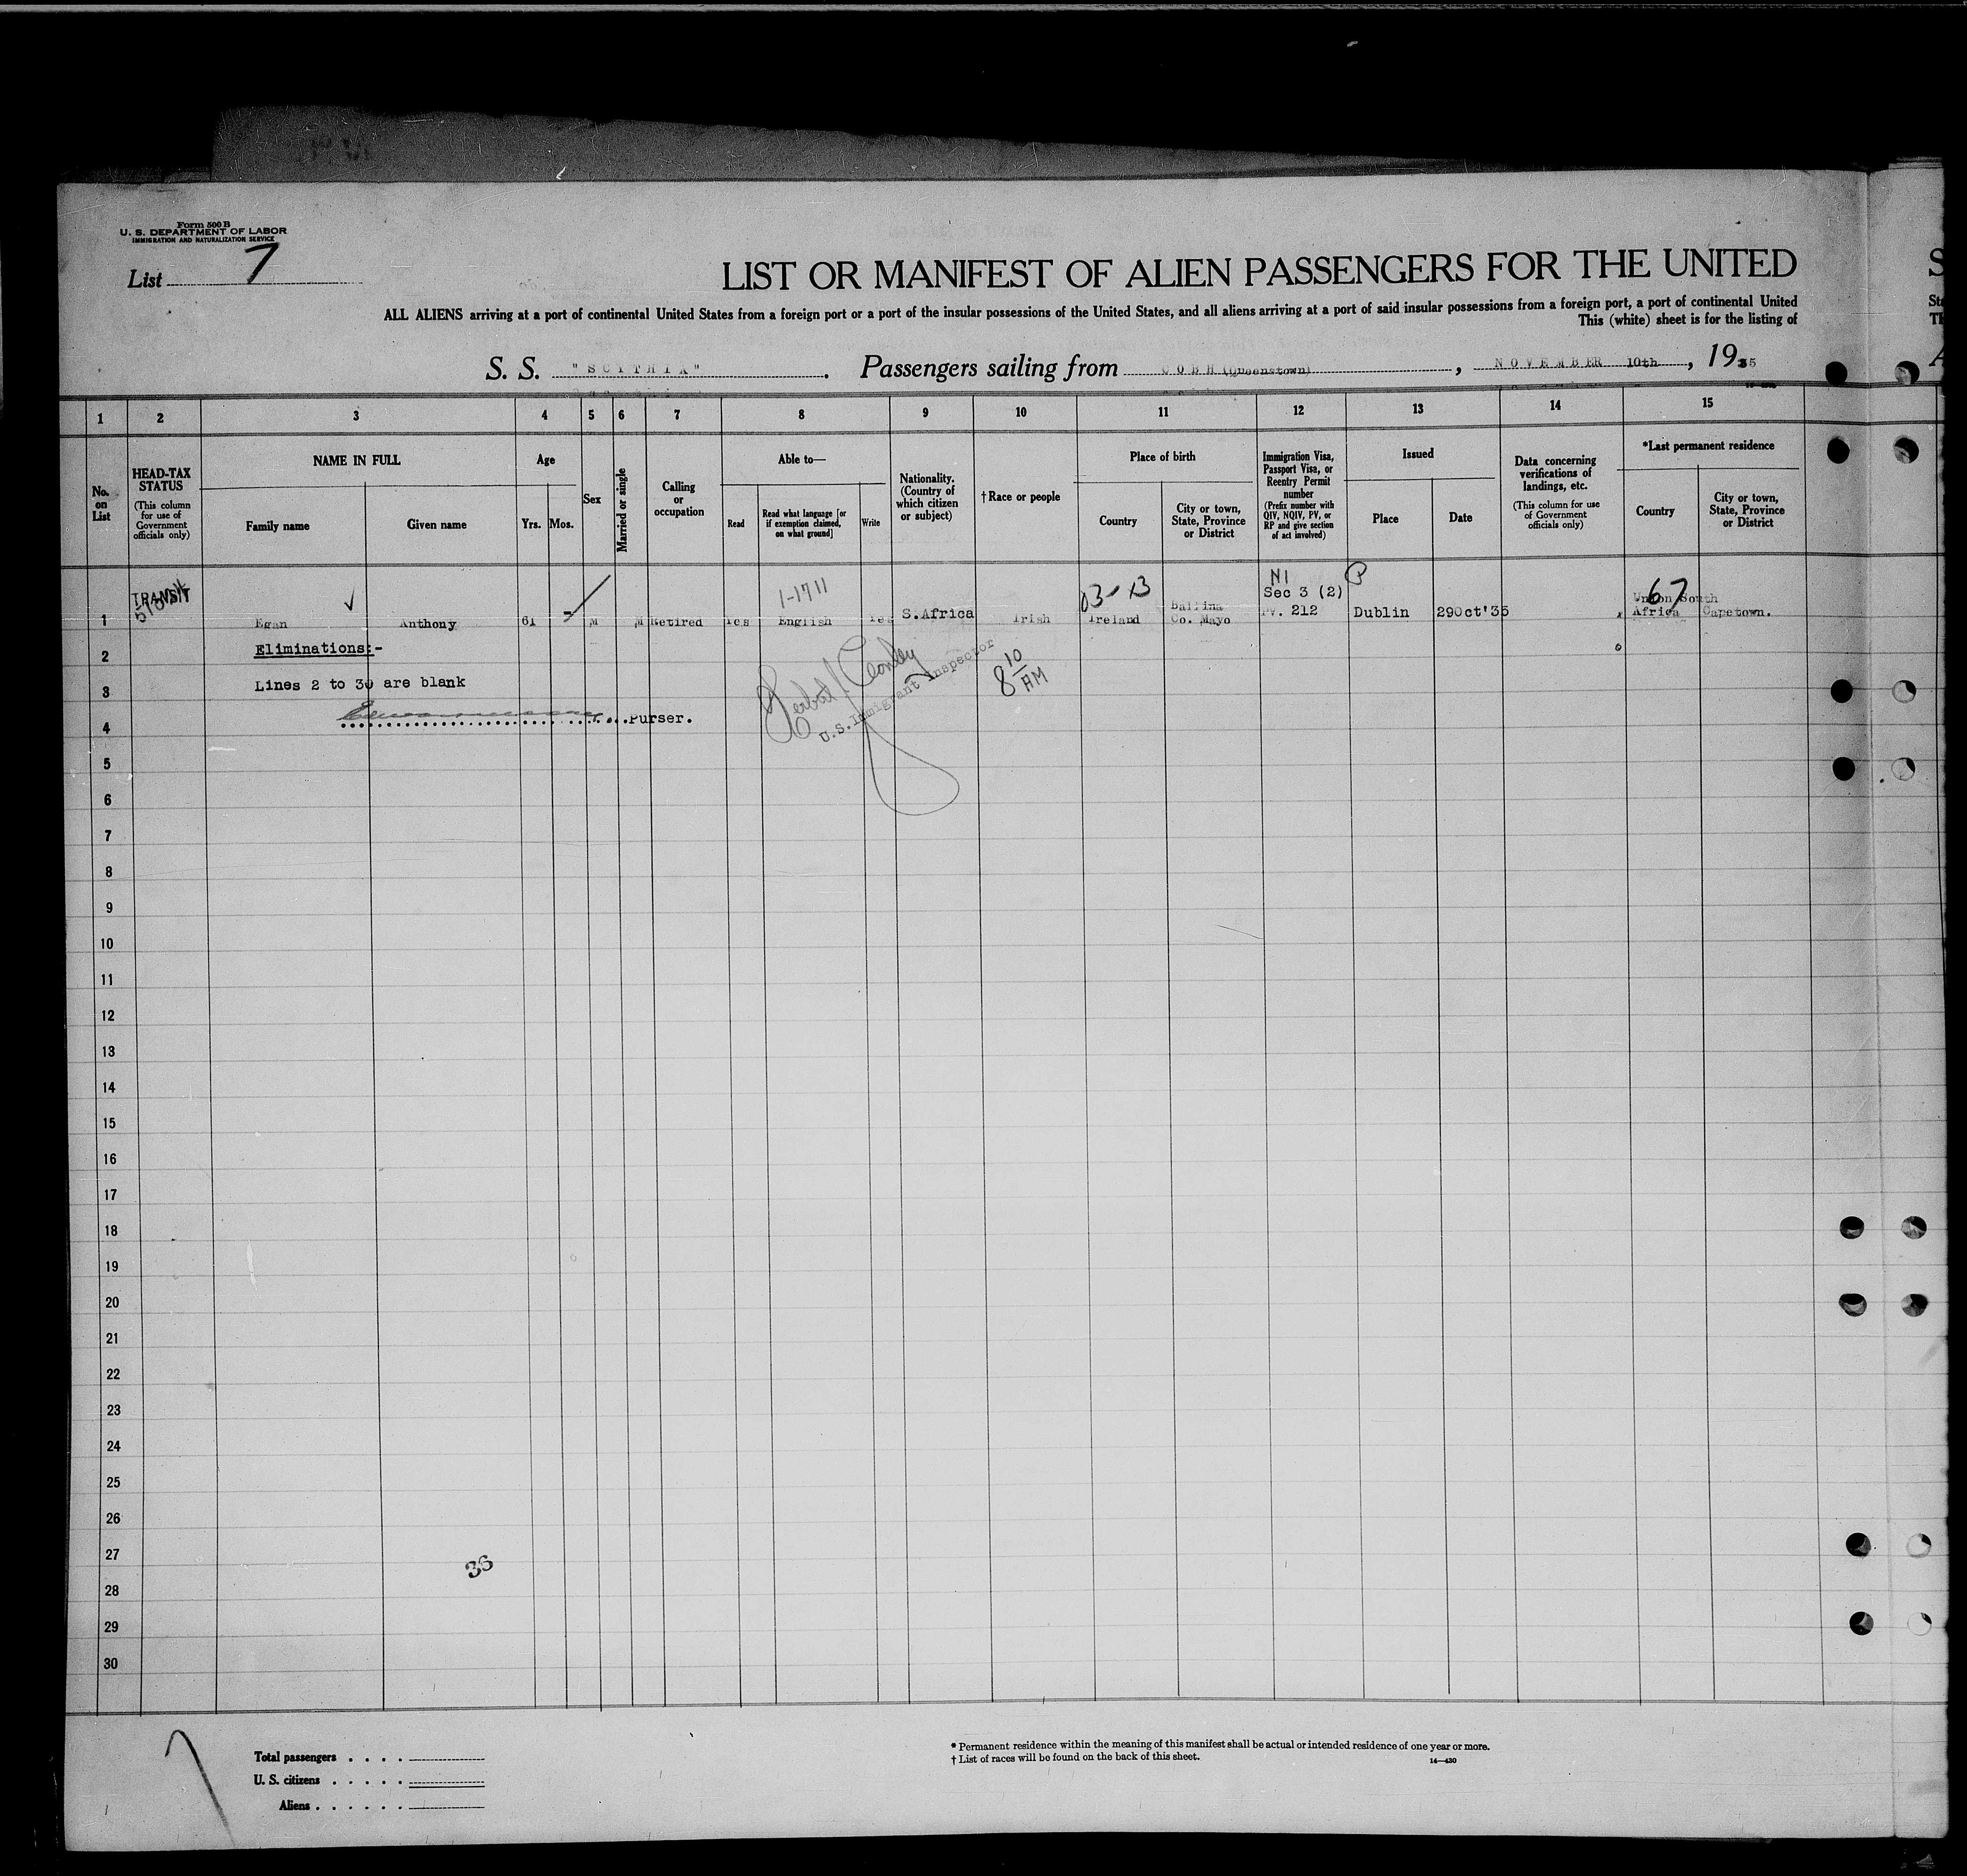 Form 500 B
U. S. DEPARTMENT OF LABOR
IMMIGRATION AND NATURALIZATION SERVICE
List 7
LIST OR MANIFEST OF ALIEN PASSENGERS FOR THE UNITED
ALL ALIENS arriving at a port of continental United States from a foreign port or a port of the insular possessions of the United States, and all aliens arriving at a port of said insular possessions from a foreign port, a port of continental United
This (white) sheet is for the listing of
S. S. "SCYTHIA". Passengers sailing from COBH (Queenstown), NOVEMBER 10th, 1935
1 2 3 4 5 6 7 8 9 10 11 12 13 14 15
No. on List
HEAD-TAX STATUS
(This column for use of Government officials only)
NAME IN FULL
Family name
Given name
Age
Yrs. Mos.
Sex
Married or single
Calling or occupation
Able to—
Read
Read what language [or if exemption claimed, on what ground]
Write
Nationality. (Country of which citizen or subject)
† Race or people
Place of birth
Country
City or town, State, Province or District
Immigration Visa, Passport Visa, or Reentry Permit number
(Prefix number with QIV, NQIV, PV, or RP and give section of act involved)
Issued
Place
Date
Data concerning verifications of landings, etc.
(This column for use of Government officials only)
*Last permanent residence
Country
City or town, State, Province or District
TRANSIT
1-1711
03-13
NI
Sec 3 (2)
P
67
Union South
1 Egan Anthony 61 M M Retired Yes English Yes S.Africa Irish Ireland Ballina Co. Mayo PV. 212 Dublin 29Oct'35 Africa Capetown.
2 Eliminations:-
3 Lines 2 to 30 are blank
4 Purser.
U.S. Immigrant Inspector
8 10 AM
5
6
7
8
9
10
11
12
13
14
15
16
17
18
19
20
21
22
23
24
25
26
27
36
28
29
30
Total passengers
U. S. citizens
Aliens
* Permanent residence within the meaning of this manifest shall be actual or intended residence of one year or more.
† List of races will be found on the back of this sheet.
14—430